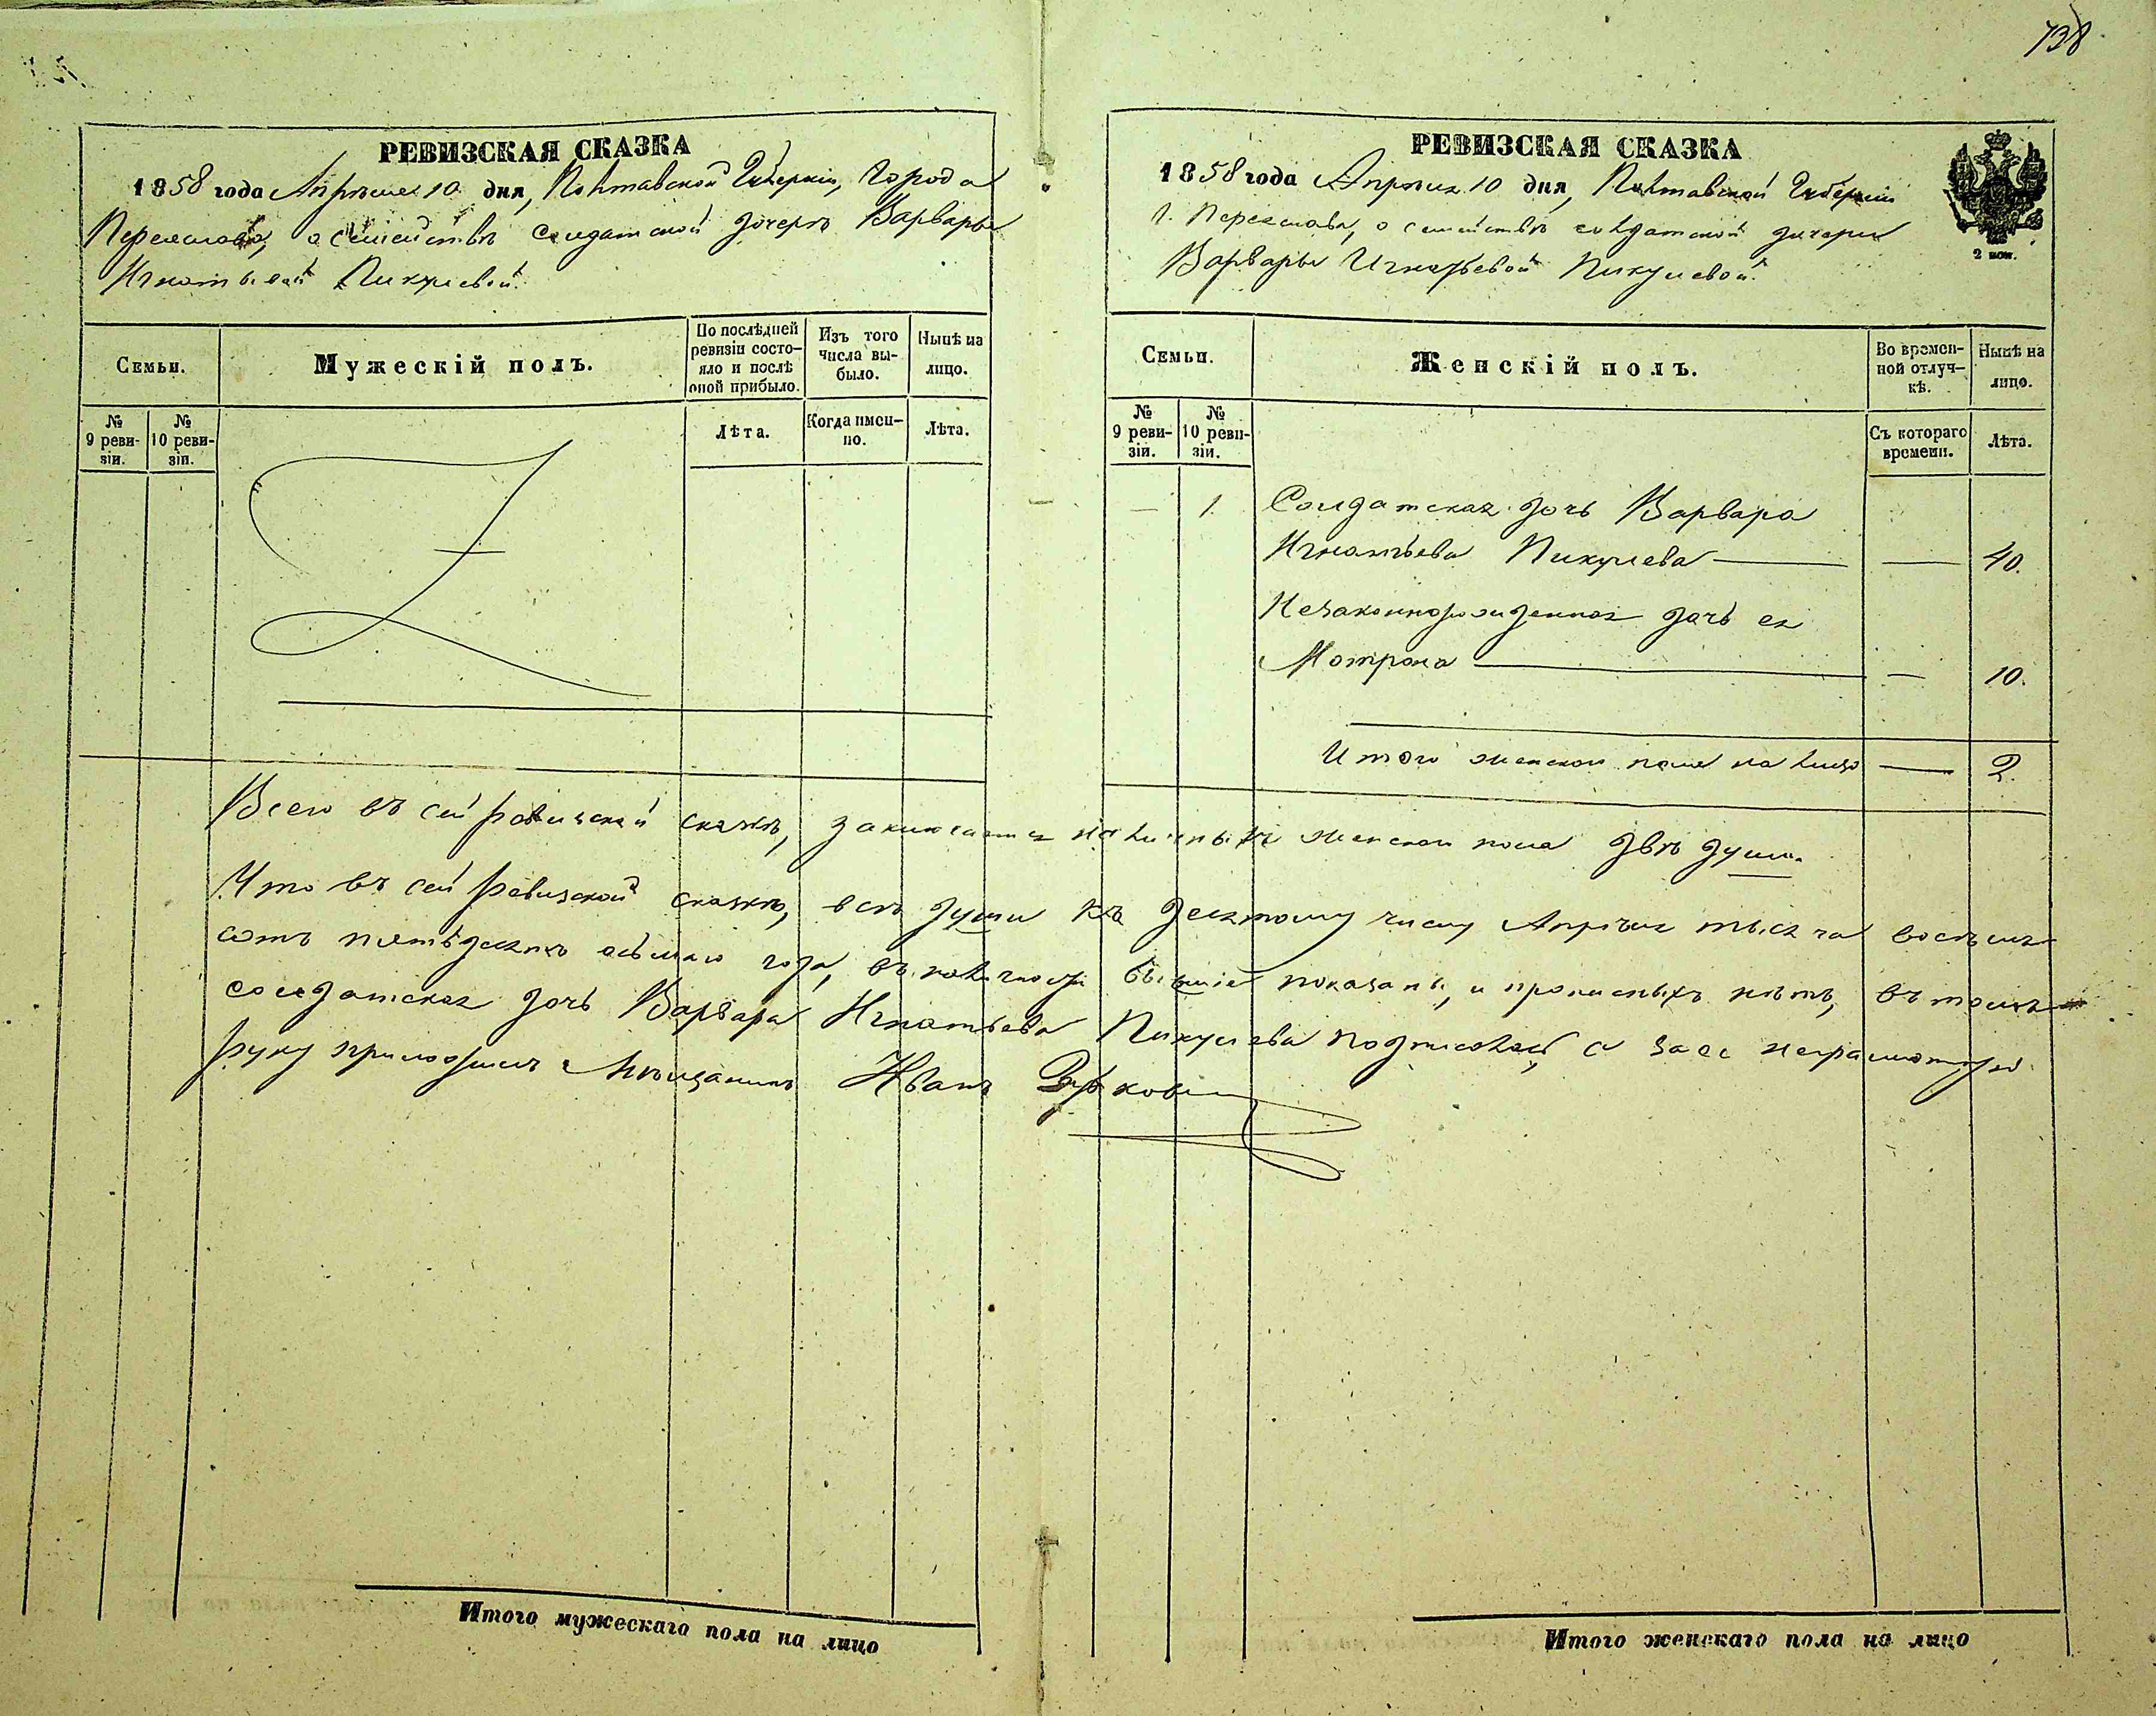 738
РЕВИЗСКАЯ СКАЗКА
1858 года Апрѣля 10 дня, Полтавской Губерніи, Города
Переяслова, о семействѣ солдатской дочерѣ Варвары
Игнатьевой Пикулевой.
Семьи.
Мужескій полъ.
По послѣдней
ревизіи состо-
яло и послѣ
оной прибыло.
Изъ того
числа вы-
было.
Нынѣ на
лицо.
№
9 реви-
зіи.
№
10 реви-
зіи.
Лѣта.
Когда имен-
но.
Лѣта.
РЕВИЗСКАЯ СКАЗКА
1858 года Апрѣля 10 дня, Полтавской Губерніи
г. Переяслава, о семействѣ солдатской дочери
Варвары Игнатьевой Пикулевой.
2 коп.
Семьи.
Женскій полъ.
Во времен-
ной отлуч-
кѣ.
Нынѣ на
лицо.
№
9 реви-
зіи.
№
10 реви-
зіи.
Съ котораго
времени.
Лѣта.
— 1. Солдатская дочь Варвара
Игнатьева Пикулева — — 40.
Незаконнорожденная дочь ея
Мотрона — — 10.
Итого женскаго пола на лицо — 2.
Всего въ сей ревизской сказкѣ, заключается наличныхъ женскаго пола двѣ души.
Что въ сей ревизской сказкѣ, всѣ души къ десятому числу Апрѣля тысяча восемь
сотъ пятьдесятъ осьмаго года, въ наличности бывшіе показаны, и прописныхъ нѣтъ, въ томъ
солдатская дочь Варвара Игнатьева Пикулева подписалась, а за ее неграмотную
руку приложилъ Мѣщанинъ Иванъ
Итого мужескаго пола на лицо
Итого женскаго пола на лицо